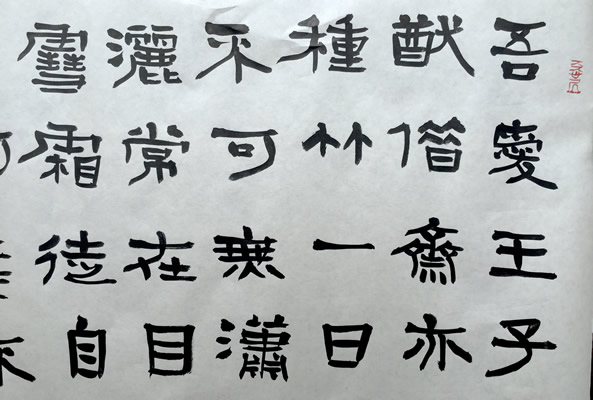 吾愛王子
猷借齋亦
種竹一日
不可無瀟
灑常在目
雪霜徒自